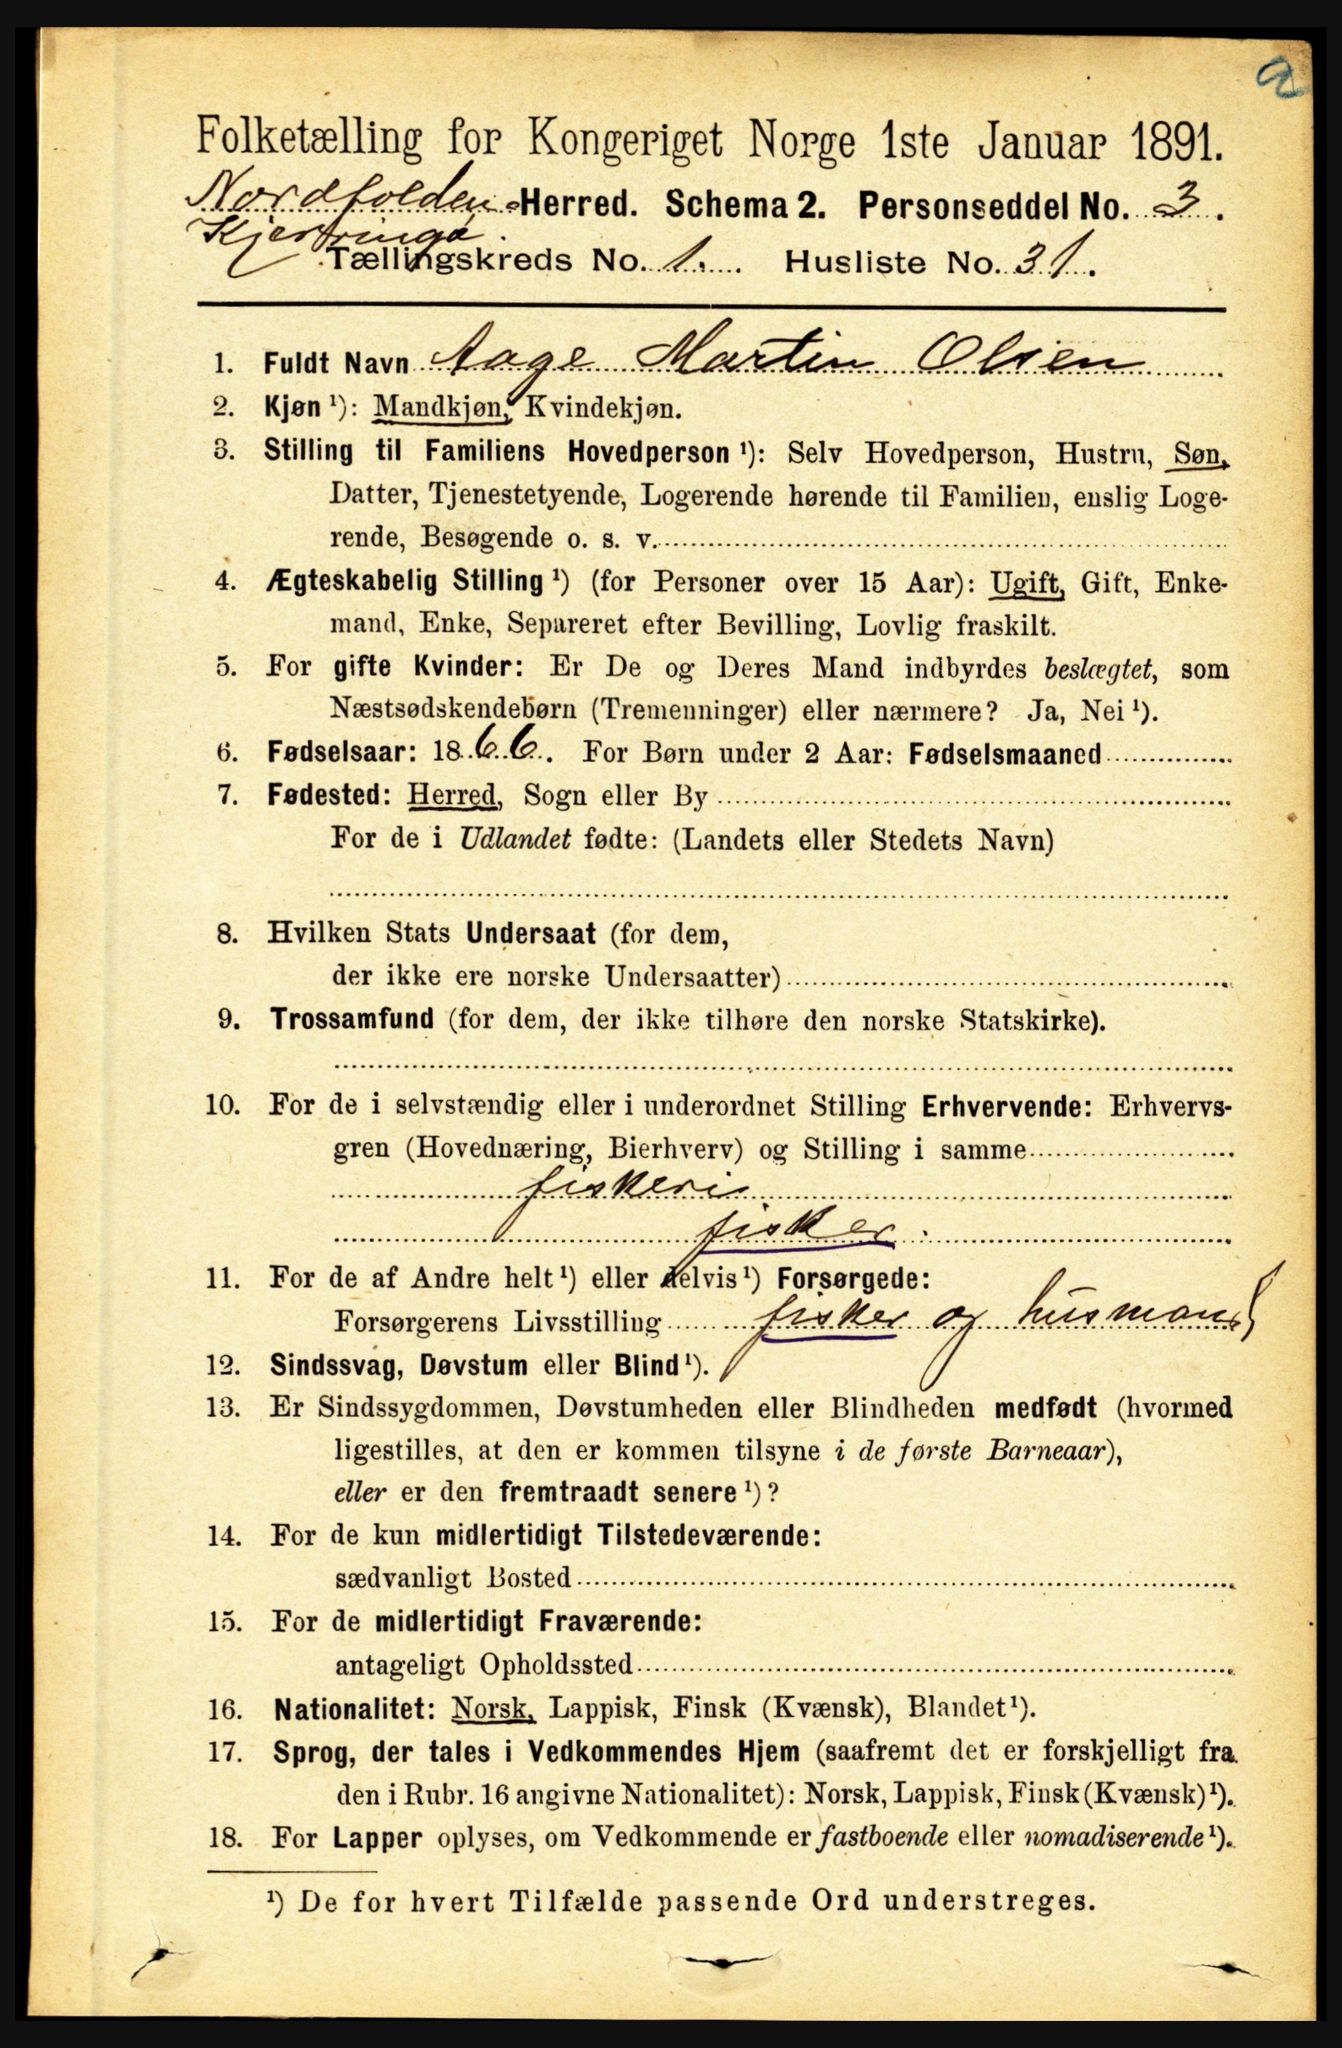 a
Folketælling for Kongeriget Norge 1ste Januar 1891.
Nordfolden-Herred. Schema 2. Personseddel No. 3.
Kjerringø
Tællingskreds No. 1. Husliste No. 31.
1. Fuldt Navn Aage Martin Olsen
2. Kjøn ¹): Mandkjøn, Kvindekjøn.
3. Stilling til Familiens Hovedperson ¹): Selv Hovedperson, Hustru, Søn,
Datter, Tjenestetyende, Logerende hørende til Familien, enslig Loge-
rende, Besøgende o. s. v.
4. Ægteskabelig Stilling ¹) (for Personer over 15 Aar): Ugift, Gift, Enke-
mand, Enke, Separeret efter Bevilling, Lovlig fraskilt.
5. For gifte Kvinder: Er De og Deres Mand indbyrdes beslægtet, som
Næstsødskendebørn (Tremenninger) eller nærmere? Ja, Nei ¹).
6. Fødselsaar: 1866. For Børn under 2 Aar: Fødselsmaaned
7. Fødested: Herred, Sogn eller By
For de i Udlandet fødte: (Landets eller Stedets Navn)
8. Hvilken Stats Undersaat (for dem,
der ikke ere norske Undersaatter)
9. Trossamfund (for dem, der ikke tilhøre den norske Statskirke).
10. For de i selvstændig eller i underordnet Stilling Erhvervende: Erhvervs-
gren (Hovednæring, Bierhverv) og Stilling i samme
fiskeri
fisker.
11. For de af Andre helt ¹) eller delvis ¹) Forsørgede:
Forsørgerens Livsstilling fisker og husmand
12. Sindssvag, Døvstum eller Blind ¹).
13. Er Sindssygdommen, Døvstumheden eller Blindheden medfødt (hvormed
ligestilles, at den er kommen tilsyne i de første Barneaar),
eller er den fremtraadt senere ¹)?
14. For de kun midlertidigt Tilstedeværende:
sædvanligt Bosted
15. For de midlertidigt Fraværende:
antageligt Opholdssted
16. Nationalitet: Norsk, Lappisk, Finsk (Kvænsk), Blandet ¹).
17. Sprog, der tales i Vedkommendes Hjem (saafremt det er forskjelligt fra
den i Rubr. 16 angivne Nationalitet): Norsk, Lappisk, Finsk (Kvænsk) ¹).
18. For Lapper oplyses, om Vedkommende er fastboende eller nomadiserende ¹).
¹) De for hvert Tilfælde passende Ord understreges.